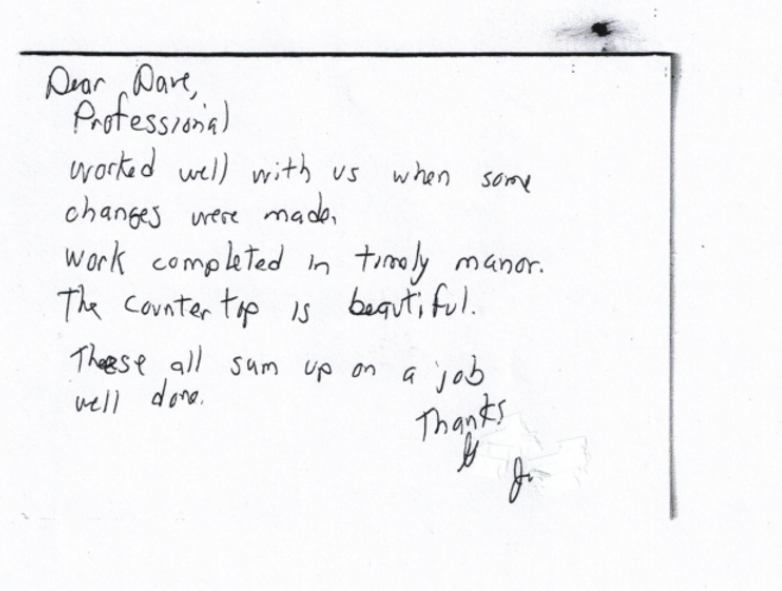 Dear Dave,
Professional
worked well with us when some
changes were made.
work completed in timely manor.
The counter top is beautiful.
These all sum up on a job
well done.
Thanks